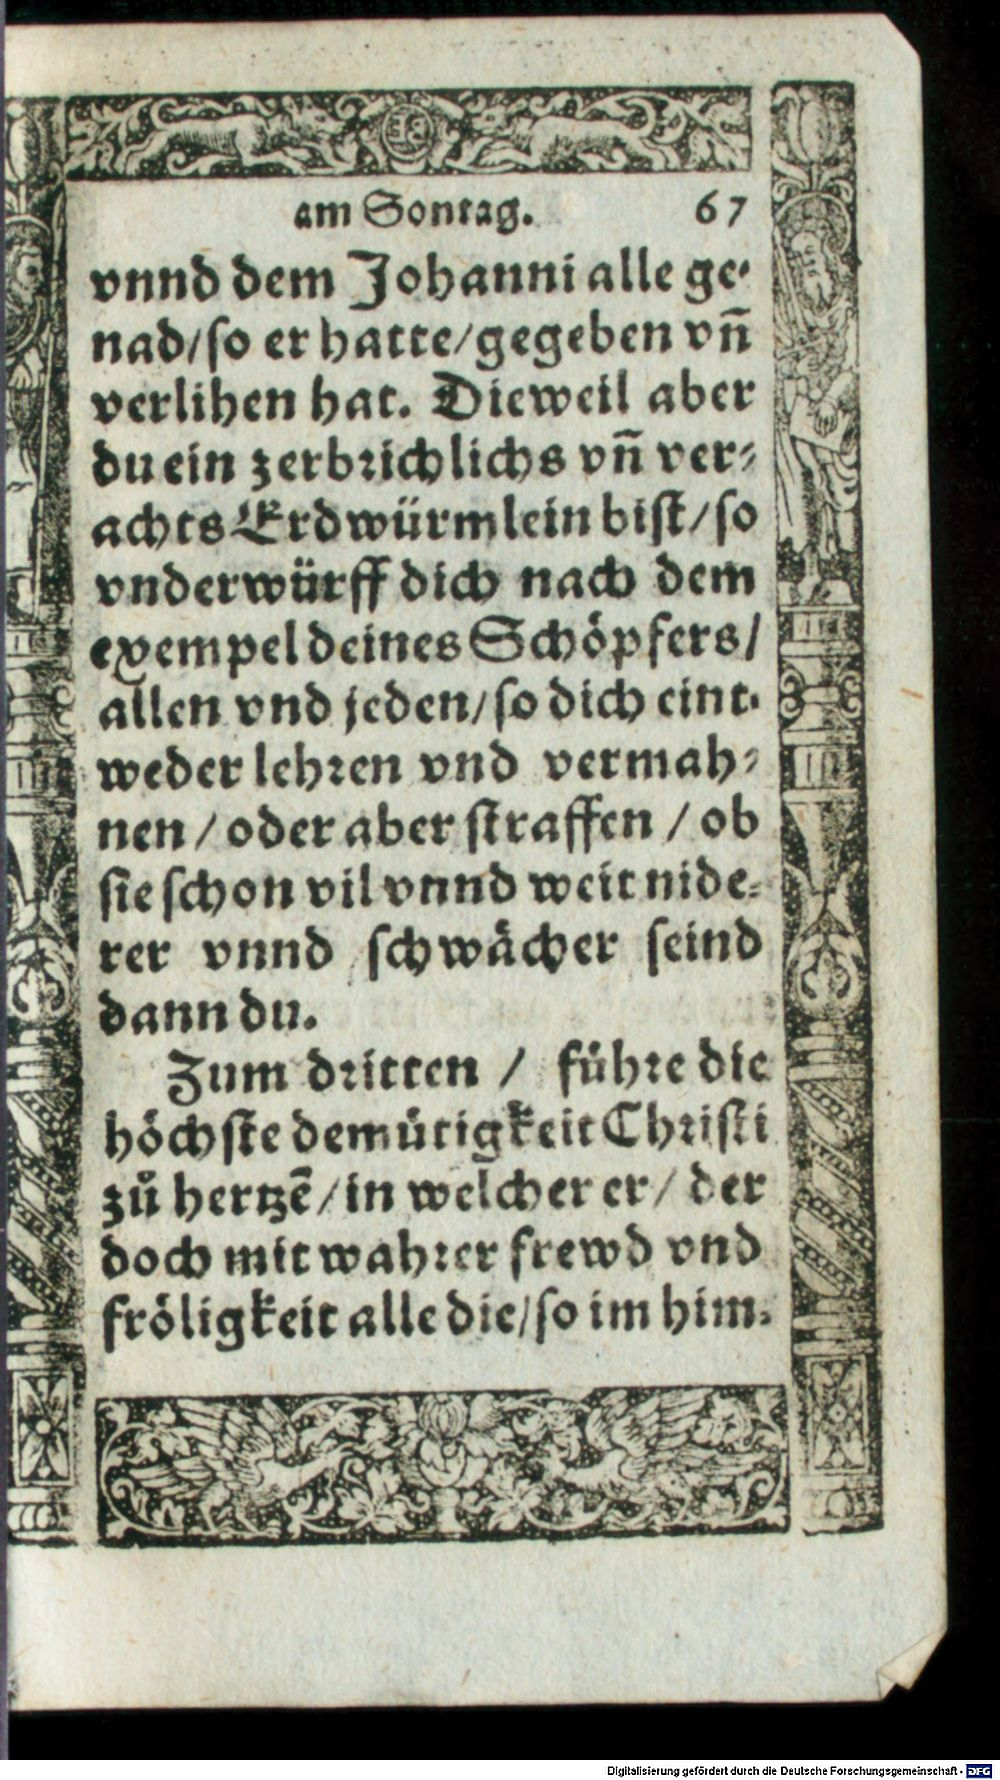 am Sontag. 67
vnnd dem Johanni alle ge⸗
nad/so er hatte/gegeben vn̄
verlihen hat. Dieweil aber
du ein zerbrichlichs vn̄ ver⸗
achts Erdwürmlein bist/so
vnderwürff dich nach dem
exempel deines Schöpfers/
allen vnd jeden/so dich eint⸗
weder lehren vnd vermah⸗
nen/oder aber straffen/ob
sie schon vil vnnd weit nide⸗
rer vnnd schwächer seind
dann du.
Zum dritten/ führe die
höchste demütigkeit Christi
zů hertzē/in welcher er/der
doch mit wahrer frewd vnd
fröligkeit alle die/so im him⸗
Digitalisierung gefördert durch die Deutsche Forschungsgemeinschaft - DFG